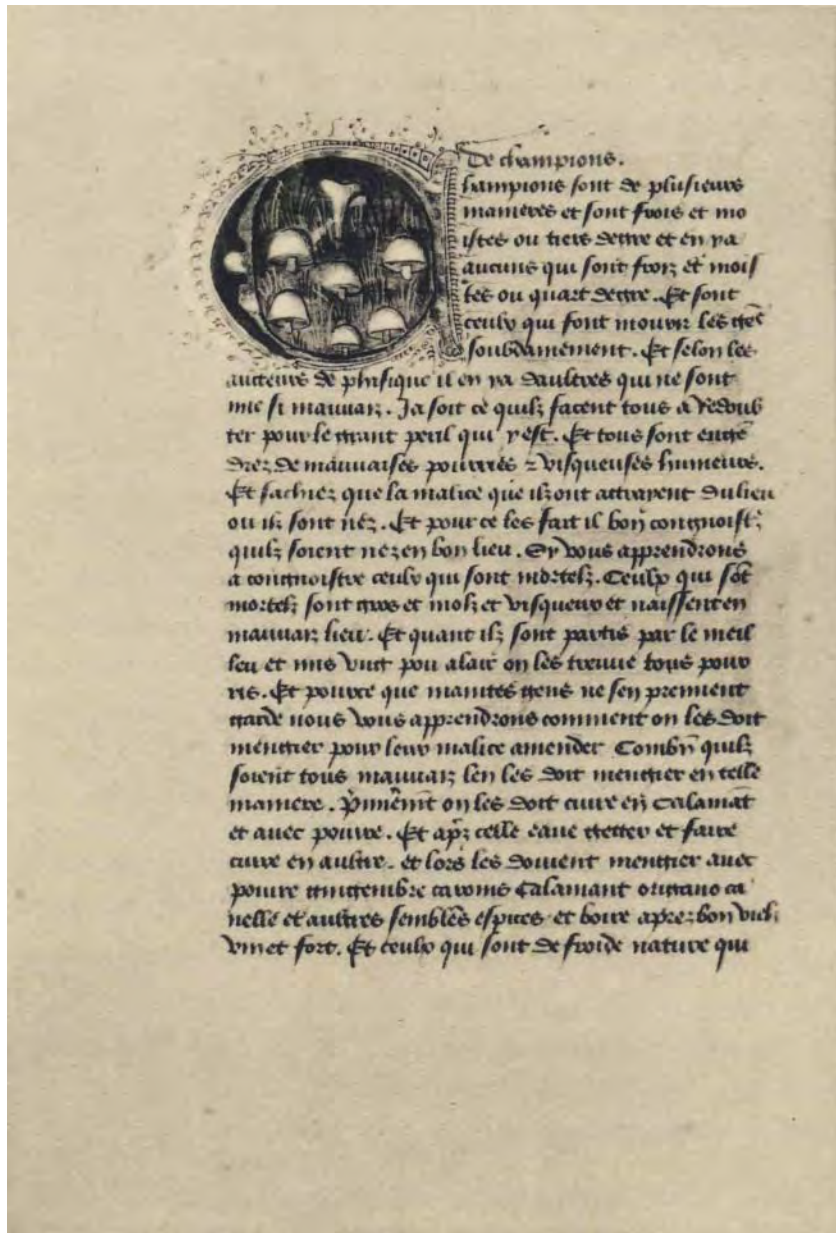 De champions.
hampions sont de plusieurs
manieres et sont frois et mo
istes ou tiers degre et en ya
aucuns qui sont froiz et mois
tes ou quart degre. Et sont
ceulx qui font mourir les gẽs
soubdainement. Et selon les
aucteurs de phisique il en ya daultres qui ne sont
mie si mauuaiz. Ja soit ce quilz facent tous a redoub
ter pour le grant peril qui yest. Et tous sont engẽ
drez de mauuaises pourries ⁊ visqueuses humeurs.
Et sachiez que la malice que ilz ont attrayent du lieu
ou ilz sont nez. Et pour ce les fait il bon congnoistr̃
quilz soient nez en bon lieu. Sy vous apprendrons
a congnoistre ceulx qui sont mortelz. Ceulx qui sõt
mortelz sont gros et molz et visqueux et naissent en
mauuaiz lieu. Et quant ilz sont partis par le meil
leu et mis vng pou alair on les treuue tous pour
ris. Et pource que maintes gens ne sen prennent
garde nous vous apprendrons comment on les doit
mengier pour leur malice amender Combn̄ quilz
soient tous mauuaiz len les doit mengier en telle
maniere. P̃miẽmt on les doit cuire en calamãt
et auec poiure. Et apr̃z celle eaue getter et faire
cuire en aultre. et lors les doiuent mengier auec
poiure gingembre carom9 Calamant origano ca
nelle et aultres semblẽs espices et boire aprez bon viel
vin et fort. Et ceulx qui sont de froide nature qui